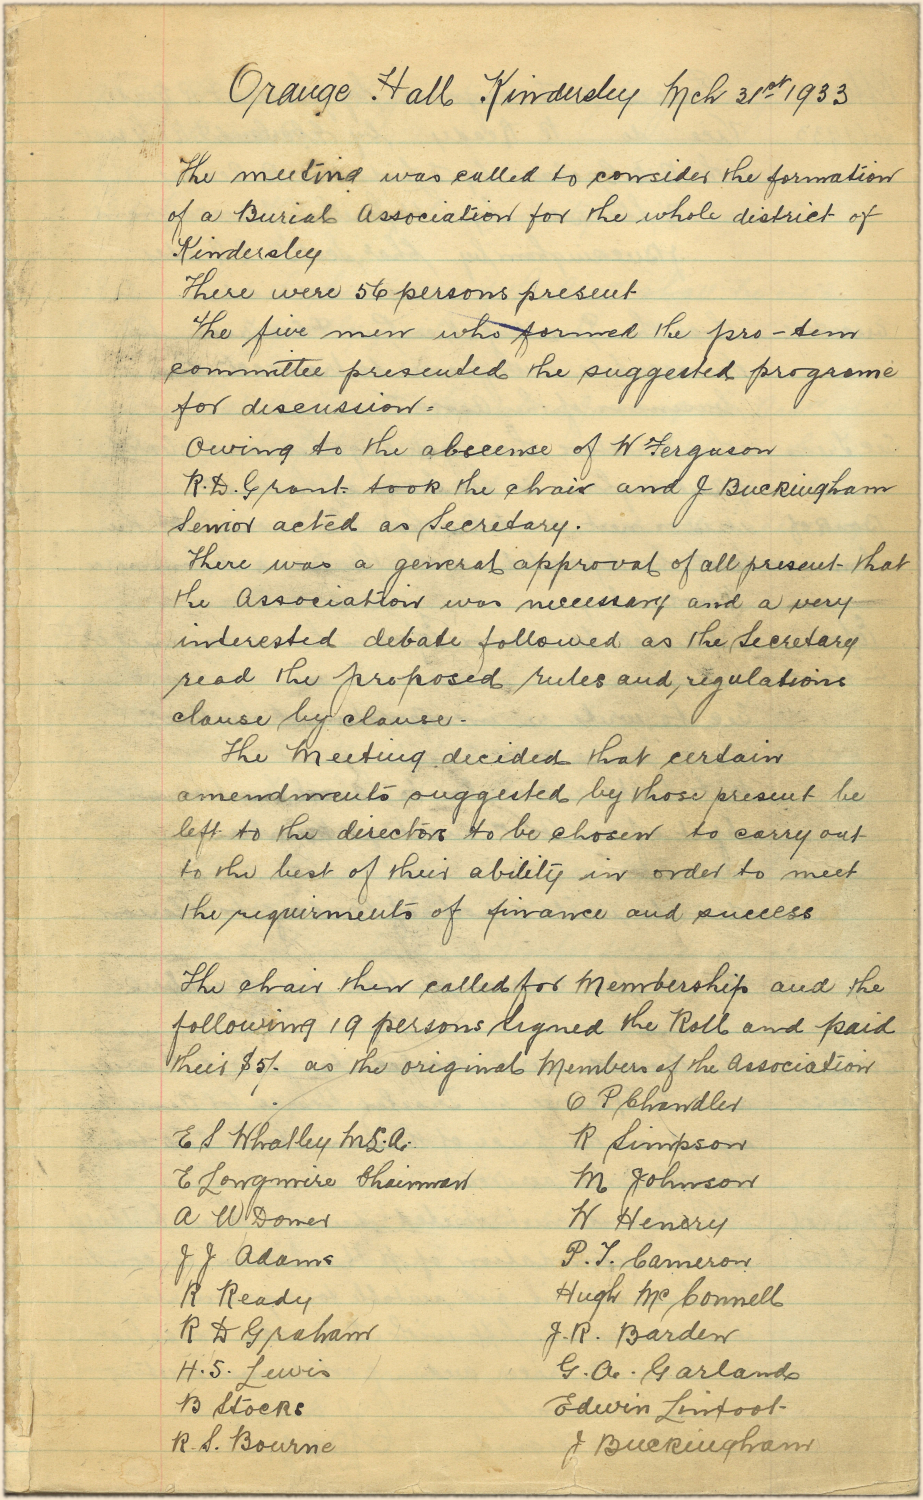 Orange Hall Kindersley Mch 31st 1933
The meeting was called to consider the formation
of a Burial Association for the whole district of
Kindersley
There were 56 persons present
The five men who formed the pro-tem
committee presented the suggested programe
for discussion.
Owing to the abscense of W Ferguson
R.D. Grant took the chair and J Buckingham
Senior acted as Secretary.
There was a general approval of all present that
the Association was necessary and a very
interested debate followed as the Secretary
read the proposed rules and, regulations
clause by clause.
The Meeting decided that certain
amendments suggested by those present be
left to the directors to be chosen to carry out
to the best of their ability in order to meet
the requirments of finance and success
The chair then called for Membership and the
following 19 persons signed the Roll and paid
their $5/- as the original Members of the Association
O P Chandler
E S Whatley M.L.A. R Simpson
E Longmire Chairman M Johnson
A W Domer W Henery
J J Adams P. T. Cameron
R Ready Hugh Mc Connell
R D Graham J. R. Barden
H. S. Lewis G. A. Garland
B Stocks Edwin Lintoot
R. S. Bourne J Buckingham